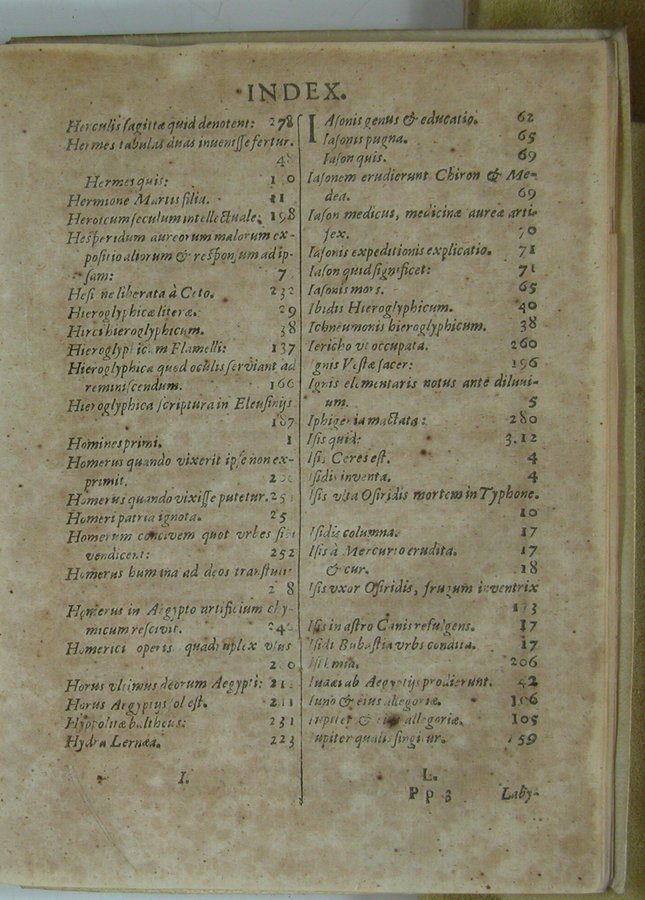 INDEX.
Herculis sagittæ quid denotent: 278
Hermes tabulas duas invenisse fertur.
48
Hermes quis:
Hermione Martis filia. 11
Heroicum seculum intellectuale. 198
Hesperidum aureorum malorum ex-
positio aliorum & responsum ad ip-
sam: 7
Hesione liberata à Ceto. 232
Hieroglyphicæ literæ. 29
Hirci hieroglyphicum. 38
Hieroglyphicum Flamelli: 137
Hieroglyphica quod oculis serviant ad
reminiscendum. 166
Hieroglyphica scriptura in Eleusinijs
187
Homines primi. 1
Homerus quando vixerit ipse non ex-
primit.
Homerus quando vixisse putetur.
Homeri patria ignota.
Homerum concivem quot vrbes sibi
vendicent: 252
Homerus humina ad deos transtulit
Homerus in Aegypto artificium chy-
micum rescivit.
Homerici operis quadruplex vsus
Horus vltimus deorum Aegypti:
Horus Aegyptijs sol est. 211
Hyppolitæ baltheus: 231
Hydra Lernæa. 223
I.
IAsonis genus & educatio. 62
Iasonis pugna. 65
Iason quis. 69
Iasonem erudierunt Chiron & Me-
dea. 69
Iason medicus, medicinæ aureæ arti-
fex. 70
Iasonis expeditionis explicatio. 71
Iason quid significet: 71
Iasonis mors. 65
Ibidis Hieroglyphicum. 40
Ichneumonis hieroglyphicum. 38
Iericho vt occupata. 260
Ignis Vestæ sacer: 196
Ignis elementaris notus ante diluvi-
um. 5
Iphigenia mactata: 280
Isis quid: 3.12
Isis Ceres est. 4
Isidis inventa. 4
Isis vlta Osiridis mortem in Typhone.
10
Isidis columna. 17
Isis à Mercurio erudita. 17
& cur. 18
Isis vxor Osiridis, frugum inventrix
113
Isis in astro Canis refulgens. 17
Isidi Bubastia vrbs condita. 17
206
Iudæi ab Aegyptijs prodierunt. 52
Iuno & eius allegoriæ. 106
Iupiter & eius allegoriæ. 105
Iupiter qualis fingitur. 159
L.
Pp 3 Laby-